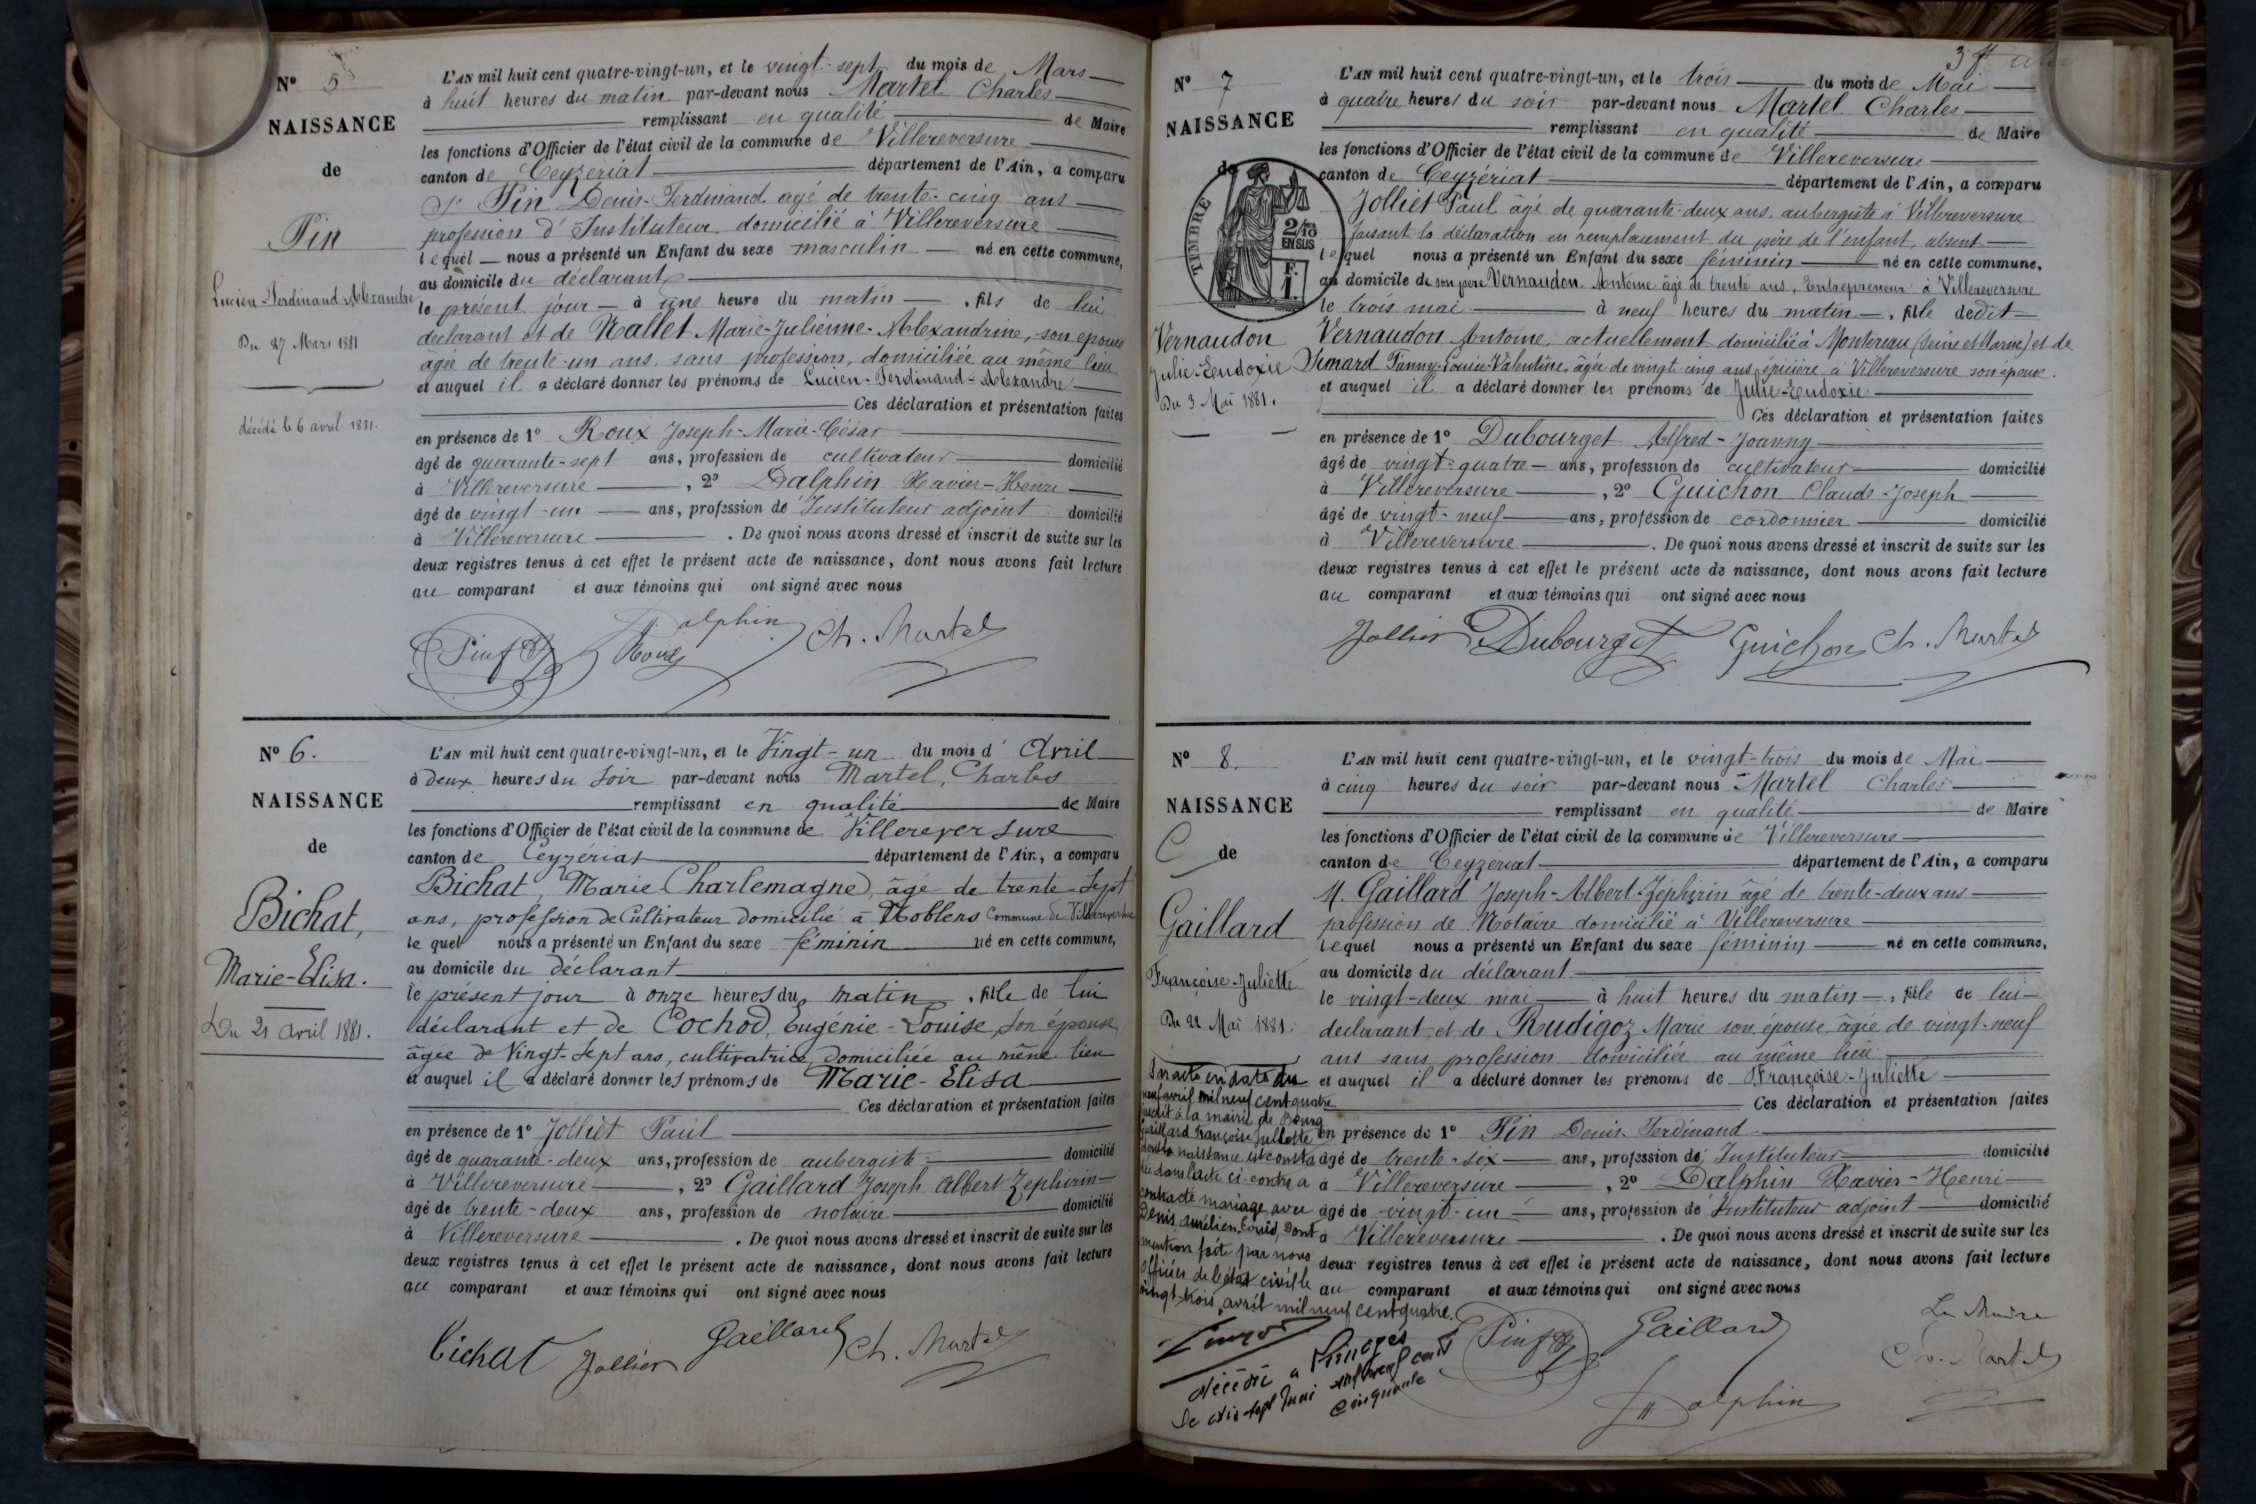 N° 5
NAISSANCE
de
Pin
Lucien-Ferdinand-Alexandre
Du 27 Mars 1881
décédé le 6 avril 1881.
L'AN mil huit cent quatre-vingt-un, et le vingt-sept du mois de Mars
à huit heures du matin par-devant nous Martel Charles
remplissant en qualité de Maire
les fonctions d'Officier de l'état civil de la commune de Villereversure
canton de Ceyzériat département de l'Ain, a comparu
Sr Pin Denis-Ferdinand âgé de trente-cinq ans
profession d'Instituteur domicilié à Villereversure
lequel nous a présenté un Enfant du sexe masculin né en cette commune,
au domicile du déclarant
le présent jour à une heure du matin, fils de lui
déclarant et de Nallet Marie-Julienne-Alexandrine, son épouse
âgée de trente-un ans, sans profession, domiciliée au même lieu
et auquel il a déclaré donner les prénoms de Lucien-Ferdinand-Alexandre
Ces déclaration et présentation faites
en présence de 1° Roux Joseph-Marie-César
âgé de quarante-sept ans, profession de cultivateur domicilié
à Villereversure, 2° Dalphin Xavier-Henri
âgé de vingt-un ans, profession de Instituteur adjoint domicilié
à Villereversure. De quoi nous avons dressé et inscrit de suite sur les
deux registres tenus à cet effet le présent acte de naissance, dont nous avons fait lecture
au comparant et aux témoins qui ont signé avec nous
Pin f Roux Dalphin Ch. Martel
N° 6.
NAISSANCE
de
Bichat,
Marie-Elisa.
Du 21 avril 1881.
L'AN mil huit cent quatre-vingt-un, et le Vingt-un du mois d'Avril
à deux heures du soir par-devant nous Martel, Charles
remplissant en qualité de Maire
les fonctions d'Officier de l'état civil de la commune de Villereversure
canton de Ceyzériat département de l'Ain, a comparu
Bichat, Marie Charlemagne, âgé de trente-sept
ans, profession de Cultivateur domicilié à Noblens Commune de Villereversure
lequel nous a présenté un Enfant du sexe féminin né en cette commune,
au domicile du déclarant
le présent jour à onze heures du matin, fille de lui
déclarant et de Cochod, Eugénie-Louise, son épouse,
âgée de Vingt-sept ans, cultivatrice, domiciliée au même lieu
et auquel il a déclaré donner les prénoms de Marie-Elisa
Ces déclaration et présentation faites
en présence de 1° Jolliet Paul
âgé de quarante-deux ans, profession de aubergiste domicilié
à Villereversure, 2° Gaillard Joseph Albert Zéphirin
âgé de trente-deux ans, profession de notaire domicilié
à Villereversure. De quoi nous avons dressé et inscrit de suite sur les
deux registres tenus à cet effet le présent acte de naissance, dont nous avons fait lecture
au comparant et aux témoins qui ont signé avec nous
Bichat Jolliet Gaillard Ch. Martel
N° 7
NAISSANCE
de
TIMBRE
2/10
EN SUS
F.
1.
Vernaudon
Julie-Eudoxie
Du 3 Mai 1881.
L'AN mil huit cent quatre-vingt-un, et le trois du mois de Mai
à quatre heures du soir par-devant nous Martel Charles
remplissant en qualité de Maire
les fonctions d'Officier de l'état civil de la commune de Villereversure
canton de Ceyzériat département de l'Ain, a comparu
Jolliet Paul âgé de quarante-deux ans, aubergiste à Villereversure
faisant la déclaration en remplacement du père de l'enfant, absent
lequel nous a présenté un Enfant du sexe féminin né en cette commune,
au domicile de son père Vernaudon Antoine âgé de trente ans, Entrepreneur à Villereversure
le trois mai à neuf heures du matin, fille dedit
Vernaudon Antoine, actuellement domicilié à Montereau (Seine et Marne) et de
Fanny-Louise-Valentine, âgée de vingt-cinq ans, épicière à Villereversure son épouse.
et auquel il a déclaré donner les prénoms de Julie-Eudoxie
Ces déclaration et présentation faites
en présence de 1° Dubourget Alfred-Joanny
âgé de vingt-quatre ans, profession de cultivateur domicilié
à Villereversure, 2° Guichon Claude-Joseph
âgé de vingt-neuf ans, profession de cordonnier domicilié
à Villereversure. De quoi nous avons dressé et inscrit de suite sur les
deux registres tenus à cet effet le présent acte de naissance, dont nous avons fait lecture
au comparant et aux témoins qui ont signé avec nous
Jolliet Dubourget Guichon Ch. Martel
N° 8.
NAISSANCE
de
Gaillard
Françoise-Juliette
Du 22 Mai 1881.
L'AN mil huit cent quatre-vingt-un, et le vingt-trois du mois de Mai
à cinq heures du soir par-devant nous Martel Charles
remplissant en qualité de Maire
les fonctions d'Officier de l'état civil de la commune de Villereversure
canton de Ceyzériat département de l'Ain, a comparu
M. Gaillard Joseph-Albert-Zéphirin âgé de trente-deux ans
profession de Notaire domicilié à Villereversure
lequel nous a présenté un Enfant du sexe féminin né en cette commune,
au domicile du déclarant
le vingt-deux mai à huit heures du matin, fille de lui
déclarant et de Rudigoz Marie son épouse, âgée de vingt-neuf
ans sans profession domiciliée au même lieu
et auquel il a déclaré donner les prénoms de Françoise-Juliette
Ces déclaration et présentation faites
en présence de 1° Pin Denis-Ferdinand
âgé de trente-six ans, profession de Instituteur domicilié
à Villereversure, 2° Dalphin Xavier-Henri
âgé de vingt-un ans, profession de Instituteur adjoint domicilié
à Villereversure. De quoi nous avons dressé et inscrit de suite sur les
deux registres tenus à cet effet le présent acte de naissance, dont nous avons fait lecture
au comparant et aux témoins qui ont signé avec nous
Pin f Gaillard Le Maire
Dalphin Ch. Martel
acte en date du
neuf avril mil neuf cent quatre
à la mairie de Bourg
Gaillard Françoise Juliette
dont la naissance est consta
tée dans l'acte ci-contre a
contracté mariage avec
Denis Aurélien dont
mention faite par nous
officier de l'état civil le
vingt-trois avril mil neuf cent quatre.
décédée à
le dix-sept mai mil neuf cent
cinquante